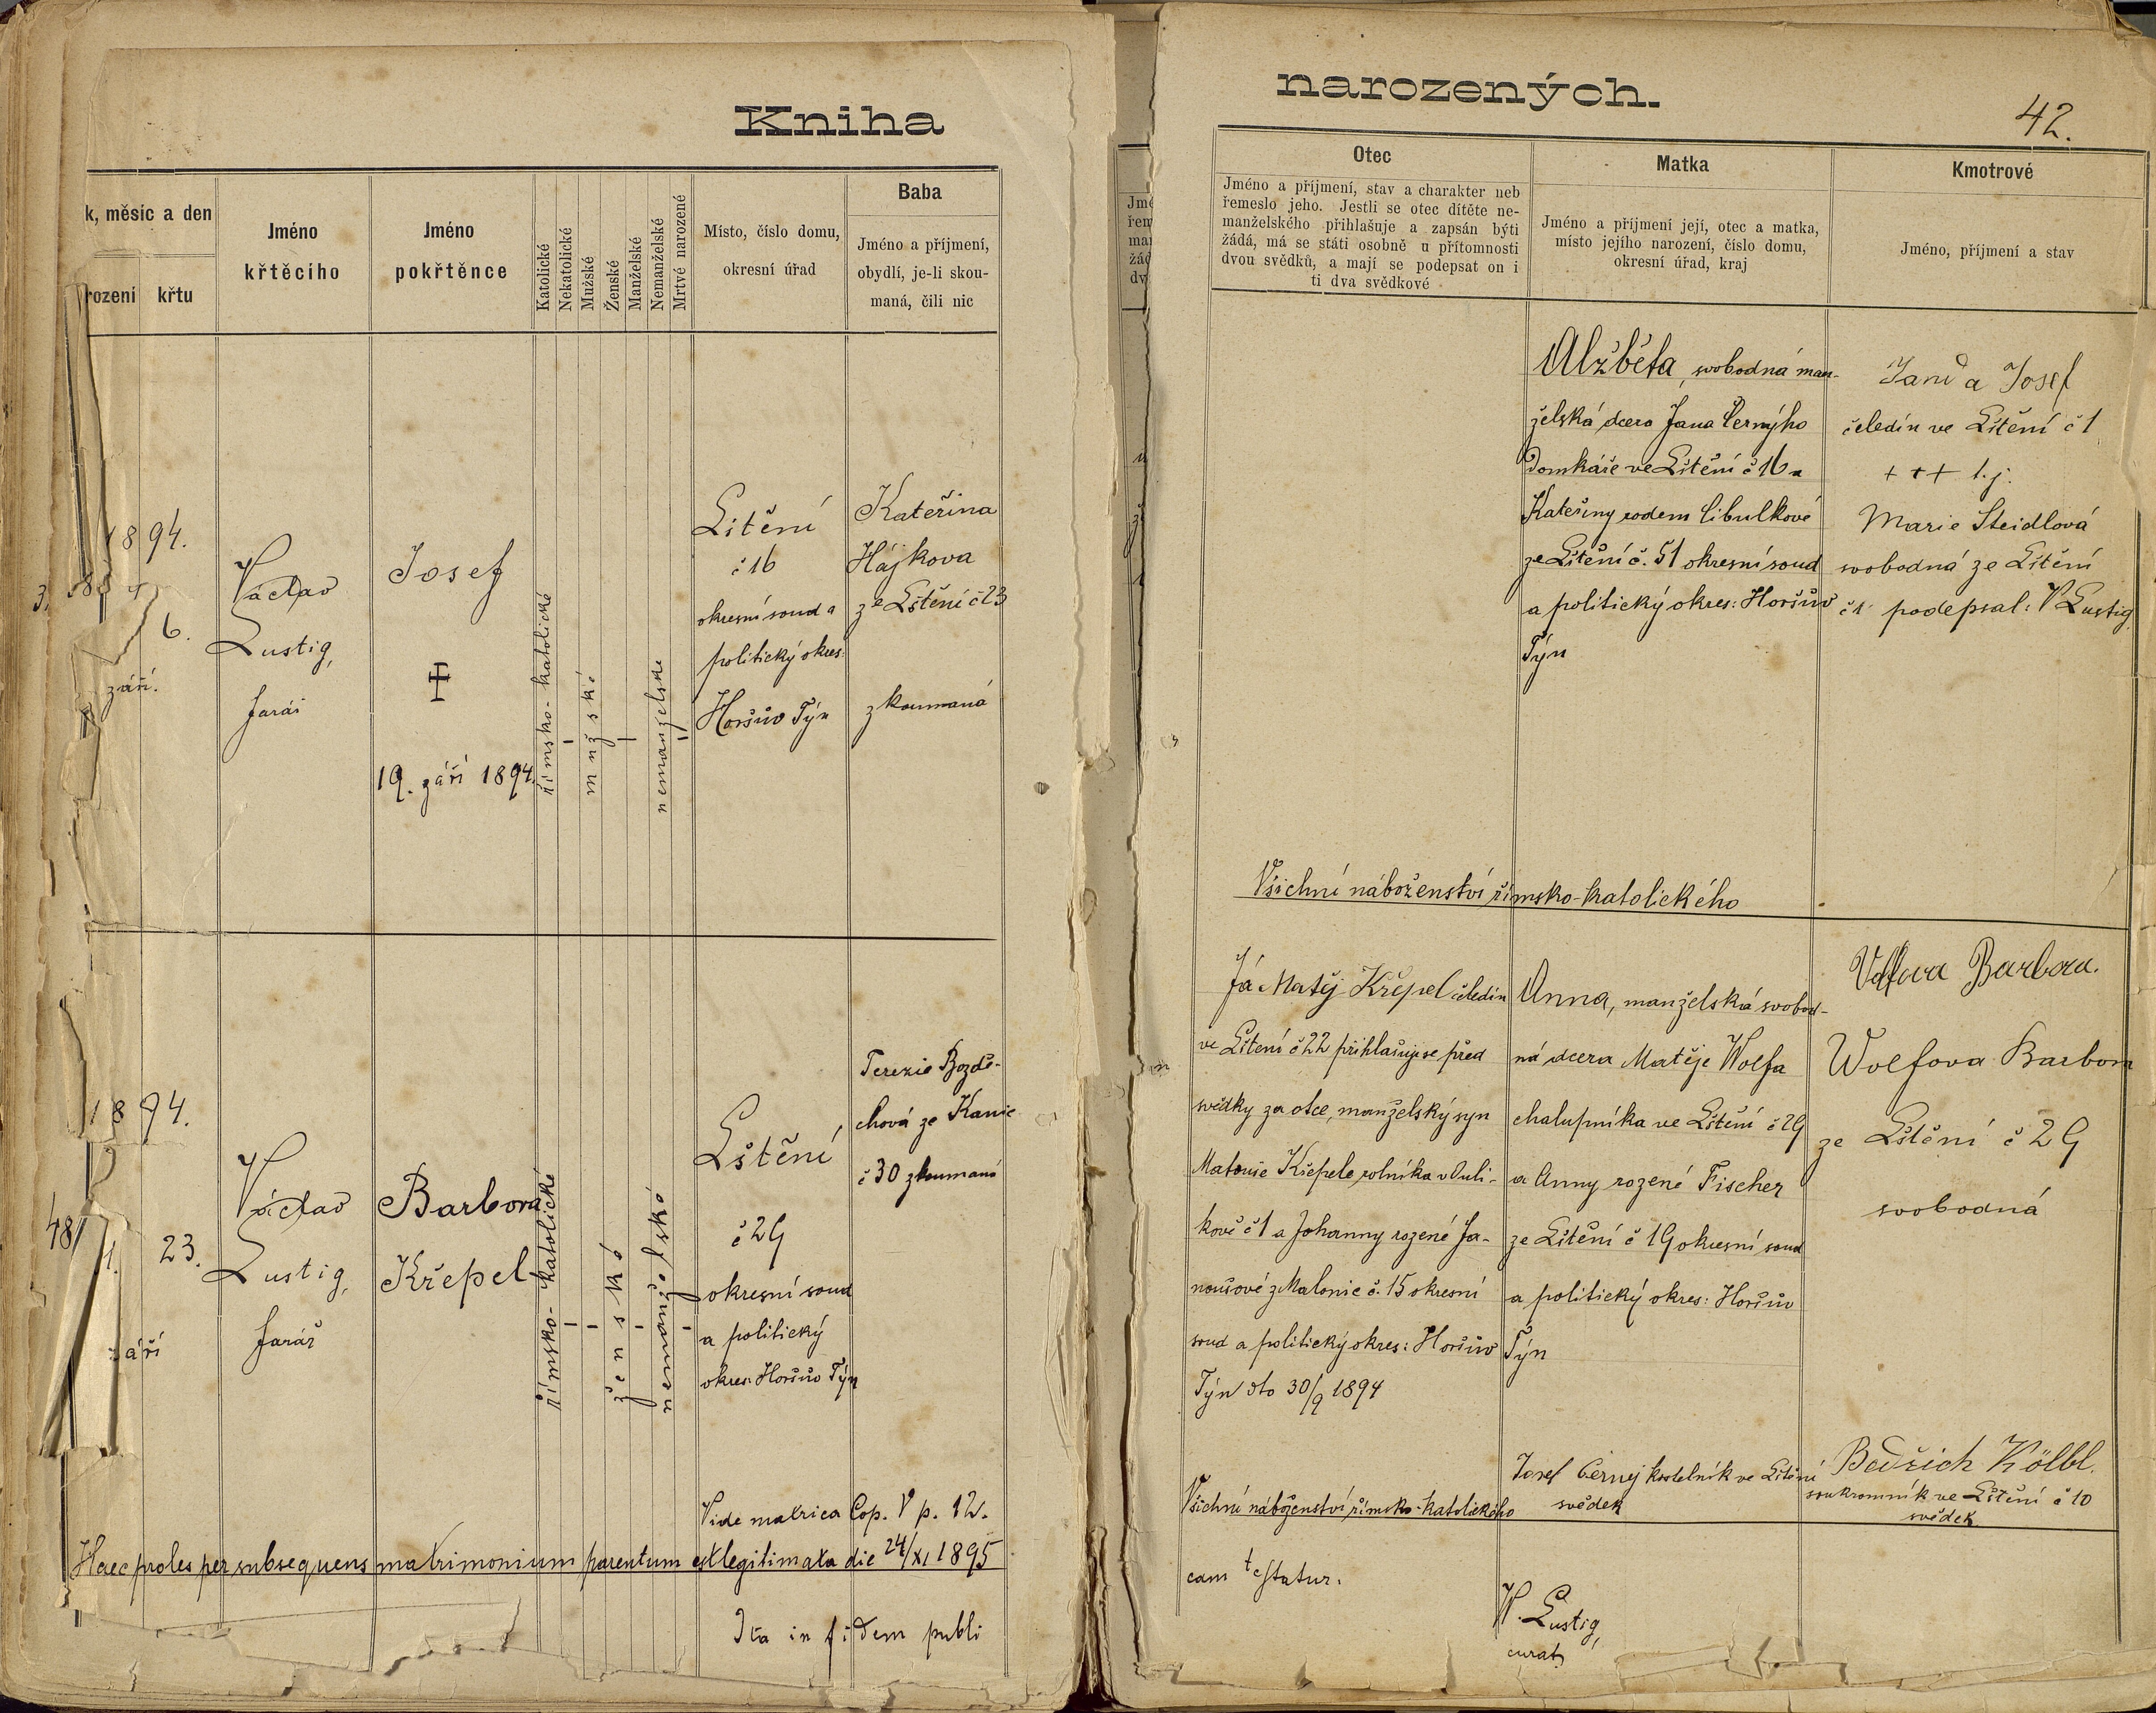 Kniha
k, měsíc a den
rození
křtu
Jméno
křtěcího
Jméno
pokřtěnce
Katolické
Nekatolické
Mužské
Ženské
Manželské
Nemanželské
Mrtvé narozené
Místo, číslo domu,
okresní úřad
Baba
Jméno a příjmení,
obydlí, je-li skou-
maná, čili nic
1894.
6.
září.
Václav
Lustig,
farář
Josef
19. září 1894.
římsko-katolické
mužské
nemanželské
Lštění
č 16
okresní soud a
politický okres:
Horšův Týn
Kateřina
Hájkova
ze Lštění č 23
zkoumaná
1894.
23.
září
Václav
Lustig,
farář
Barbora
Křepel
římsko-katolické
ženské
nemanželské
Lštění
č 29
okresní soud
a politický
okres: Horšův Týn
Terezie Bozdě-
chová ze Kanic
č 30 zkoumaná
Vide matrica Cop. V p. 12.
Haec proles per subsequens matrimonium parentum est legitimata die 24/XI 1895
Ita in fidem publi
narozených.
42.
Otec
Jméno a příjmení, stav a charakter neb
řemeslo jeho. Jestli se otec dítěte ne-
manželského přihlašuje a zapsán býti
žádá, má se státi osobně u přítomnosti
dvou svědků, a mají se podepsat on i
ti dva svědkové
Matka
Jméno a příjmení její, otec a matka,
místo jejího narození, číslo domu,
okresní úřad, kraj
Kmotrové
Jméno, příjmení a stav
Alžběta, svobodná man-
želská dcera Jana Černýho
domkáře ve Lštění č 16 a
Kateřiny rodem Cibulkové
ze Lštění č. 51 okresní soud
a politický okres: Horšův
Týn
a Josef
čeledín ve Lštění č 1
+++ t.j.
Marie Steidlová
svobodná ze Lštění
č 1 podepsal: V Lustig,
Všichni náboženství římsko-katolického
Já Matěj Křepel čeledín
ve Lštění č 22 přihlašuji se před
svědky za otce, manželský syn
Matouše Křepele rolníka v Ouli-
kově č 1 a Johanny rozené Ja-
noušové z Malonic č. 15 okresní
soud a politický okres: Horšův
Týn dto 30/9 1894
Anna, manželská svobod-
ná dcera Matěje Wolfa
chalupníka ve Lštění č 29
a Anny rozené Fischer
ze Lštění č 19 okresní soud
a politický okres: Horšův
Týn
Barbora.
Wolfova Barbora
ze Lštění č 29
svobodná
Všichni náboženství římsko-katolického
Josef Černej kostelník ve Lštění
svědek
Bedřich Kölbl.
soukromník ve Lštění č 10
svědek
cam testatur.
W. Lustig,
curat